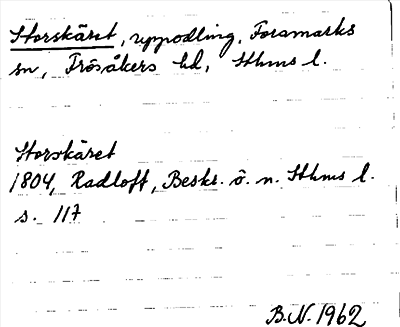 Storskäret, uppodling, Forsmarks
sn, Frösåkers hd, Sthms l.
Storskäret
1804, Radloff, Beskr. ö. n. Sthms l.
s. 117
B.N. 1962